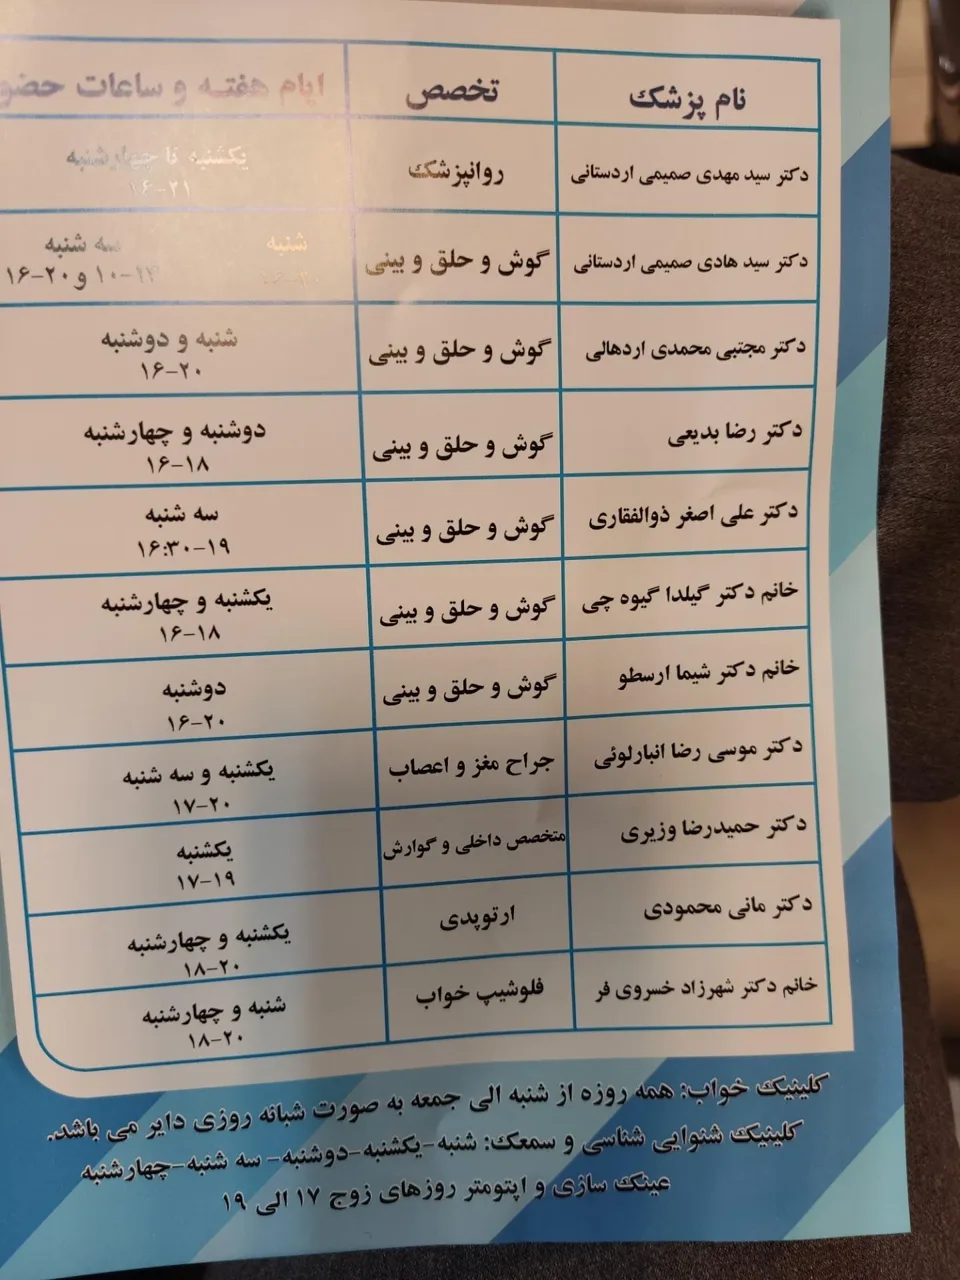 نام پزشک
تخصص
ایام هفته و ساعات حضو
دکتر سید مهدی صمیمی اردستانی
روانپزشک
یکشنبه تا چهارشنبه
۱۶-۲۱
دکتر سید هادی صمیمی اردستانی
گوش و حلق و بینی
شنبه
سه شنبه
۱۰-۱۲ و ۲۰-۱۶
دکتر مجتبی محمدی اردهالی
گوش و حلق و بینی
شنبه و دوشنبه
۱۶-۲۰
دکتر رضا بدیعی
گوش و حلق و بینی
دوشنبه و چهارشنبه
۱۶-۱۸
دکتر علی اصغر ذوالفقاری
گوش و حلق و بینی
سه شنبه
۱۶:۳۰-۱۹
خانم دکتر گیلدا گیوه چی
گوش و حلق و بینی
یکشنبه و چهارشنبه
۱۶-۱۸
خانم دکتر شیما ارسطو
گوش و حلق و بینی
دوشنبه
۱۶-۲۰
دکتر موسی رضا انبارلوئی
جراح مغز و اعصاب
یکشنبه و سه شنبه
۱۷-۲۰
دکتر حمیدرضا وزیری
متخصص داخلی و گوارش
یکشنبه
۱۷-۱۹
دکتر مانی محمودی
ارتوپدی
یکشنبه و چهارشنبه
۱۸-۲۰
خانم دکتر شهرزاد خسروی فر
فلوشیپ خواب
شنبه و چهارشنبه
۱۸-۲۰
کلینیک خواب: همه روزه از شنبه الی جمعه به صورت شبانه روزی دایر می باشد.
کلینیک شنوایی شناسی و سمعک: شنبه-یکشنبه-دوشنبه- سه شنبه-چهارشنبه
عینک سازی و اپتومتر روزهای زوج ۱۷ الی ۱۹